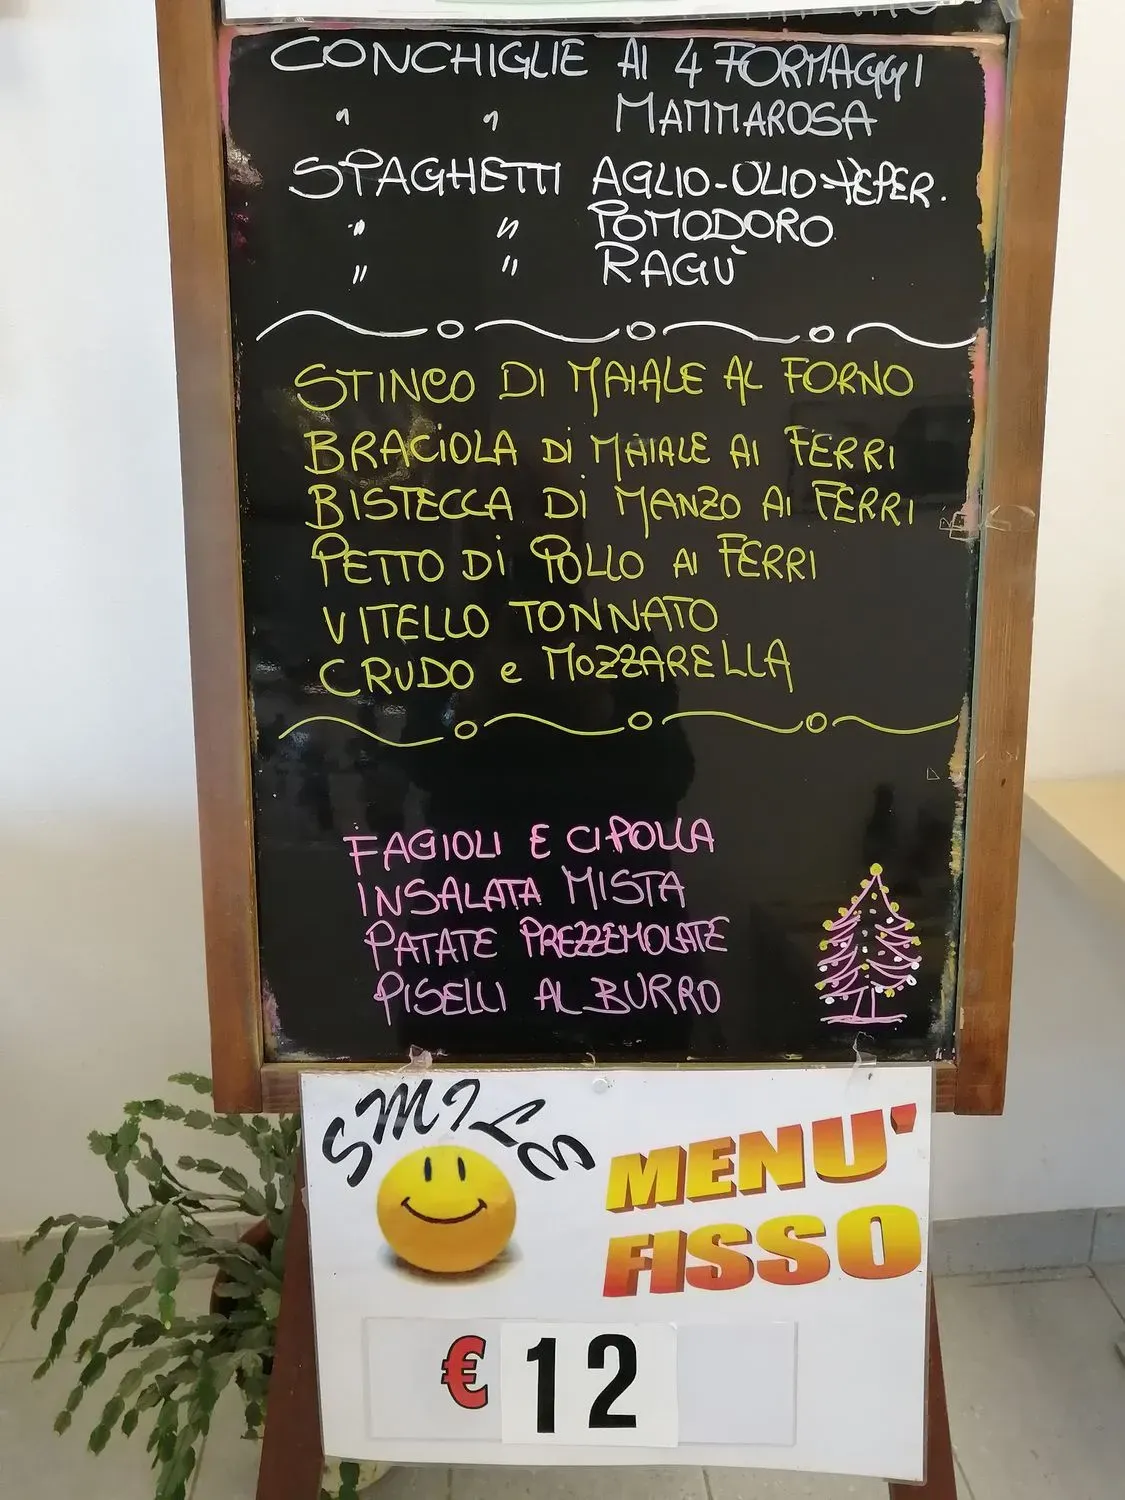 CONCHIGLIE AI 4 FORMAGGI
" " MAMMAROSA
SPAGHETTI AGLIO-OLIO-PEPER.
" " POMODORO
" " RAGÙ
STINCO DI MAIALE AL FORNO
BRACIOLA DI MAIALE AI FERRI
BISTECCA DI MANZO AI FERRI
PETTO DI POLLO AI FERRI
VITELLO TONNATO
CRUDO e MOZZARELLA
FAGIOLI E CIPOLLA
INSALATA MISTA
PATATE PREZZEMOLATE
PISELLI AL BURRO
SMILE
MENU'
FISSO
€ 12